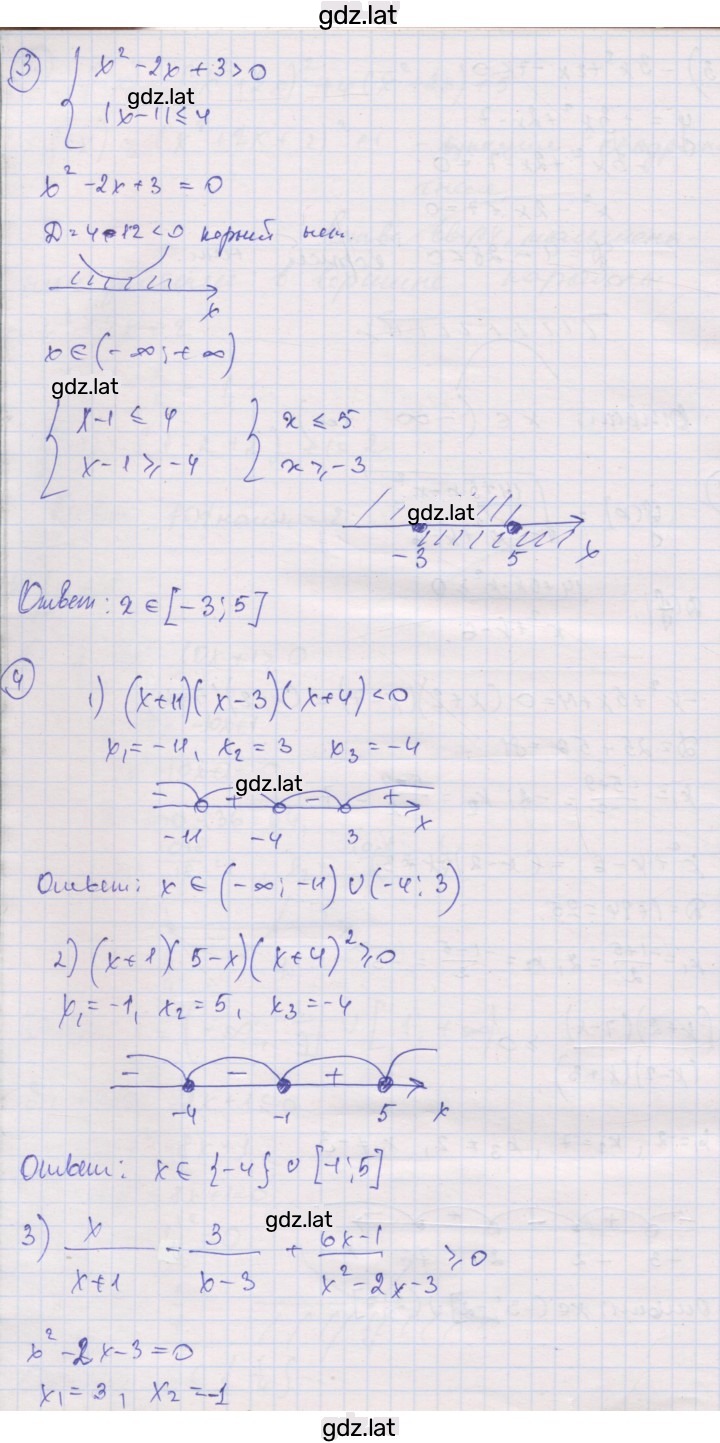 gdz.lat
3) { x² - 2x + 3 > 0
gdz.lat
|x-1| ≤ 4
x² - 2x + 3 = 0
D = 4 - 12 < 0 корней нет.
x
x ∈ (-∞; +∞)
gdz.lat
{ x-1 ≤ 4 { x ≤ 5
x-1 ≥ -4 x ≥ -3
gdz.lat
-3 5 x
Ответ: x ∈ [-3; 5]
4) 1) (x+11)(x-3)(x+4) < 0
x₁ = -11, x₂ = 3 x₃ = -4
gdz.lat
- + - +
-11 -4 3 x
Ответ: x ∈ (-∞; -11) ∪ (-4; 3)
2) (x+1)(5-x)(x+4)² ≥ 0
x₁ = -1, x₂ = 5, x₃ = -4
- - +
-4 -1 5 x
Ответ: x ∈ {-4} ∪ [-1; 5]
gdz.lat
3) x/(x+1) - 3/(x-3) + (6x-1)/(x²-2x-3) ≥ 0
x² - 2x - 3 = 0
x₁ = 3, x₂ = -1
gdz.lat